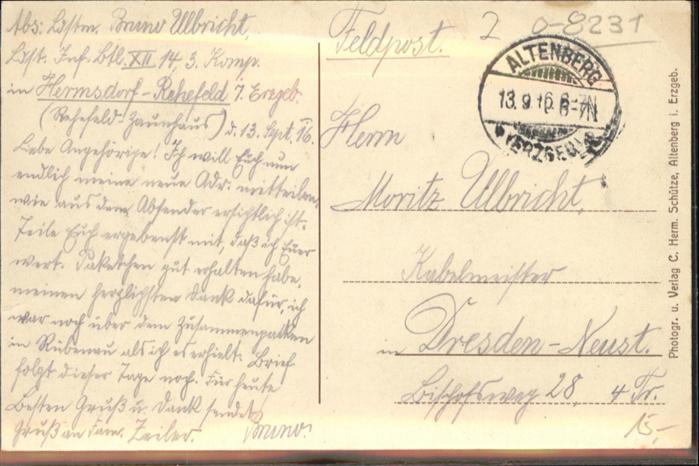 Abs: Ldstm. Bruno Ulbricht,
Ldst. Inf. Btl. XII 14, 3. Komp.
in Hermsdorf-Rehefeld i. Erzgeb.
(Rehefeld-Zaunhaus) d. 13. Spt. 16.
Liebe Angehörige. Ich will Euch nun
endlich meine neue Adr. mitteilen,
wie aus dem Absender ersichtlich ist.
Teile Euch ergebenst mit, daß ich Euer
wert. Paketchen gut erhalten habe,
meinen herzlichsten Dank dafür, ich
war noch über dem Zusammenpacken
in Rübenau als ich es erhielt. Brief
folgt dieser Tage noch. Für heute
Besten Gruß u. Dank sendet
Gruß an Fam. Zeiler. Bruno.
Feldpost. 2 0-8231
ALTENBERG
13.9.16. 6-7N
(ERZGEB.)
Herrn
Moritz Ulbricht,
Kabelmeister
in Dresden-Neust.
Bischofsweg 28, 4 Tr.
15,-
Photogr. u. Verlag C. Herm. Schütze, Altenberg i. Erzgeb.